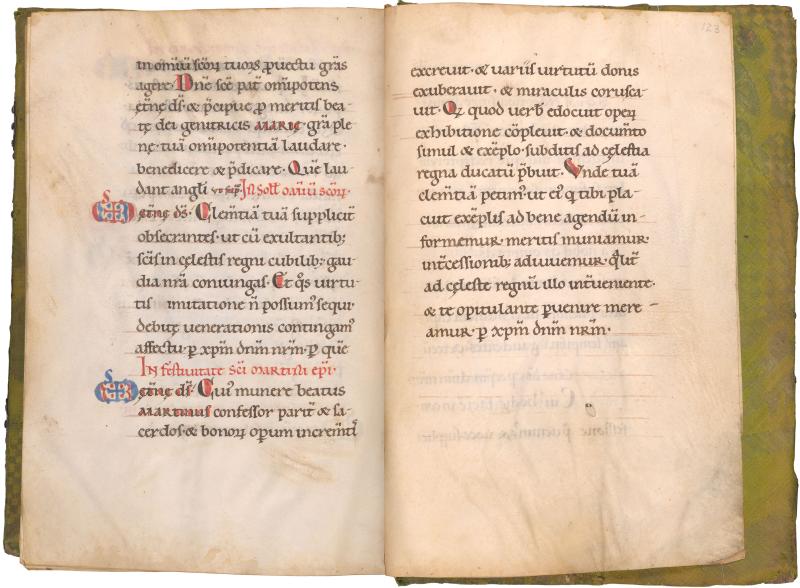 in om̅iu̅ sc̅oꝝ tuoꝝ ꝓuectu gr̅as
agere. Dn̅e sc̅e pat̅ om̅ipotens
et̅ne ds̅. & p̅cipue ꝓ meritis bea-
tę dei genitricis MARIĘ. gr̅a ple
nę. tua̅ om̅ipotentia̅ laudare.
benedicere & p̅dicare. Que̅ lau-
dant angli In soll̅ om̅iu̅ sc̅oꝝ.
et̅nę ds̅. Clem̅tia̅ tua̅ supplicit̅
obsecrantes. ut cu̅ exultantib;
sc̅is in cęlestis regni cubilib; gau-
dia nr̅a coniungas. Et q̅s uirtu-
tis imitatione n̅ possum᷒ sequi.
debitę uenerationis contingam᷒
affectu. ꝑ xp̅m dn̅m nr̅m. ꝑ que̅
IN festiuitate Sc̅i MARTINI ep̅i.
et̅nę ds̅. Cui᷒ munere beatus
MARTINUS confessor parit̅ & sa-
cerdos. & bonoꝝ operum increm̅tis
123
excreuit. & uariis uirtutu̅ donis
exuberauit. & miraculis corusca-
uit. Qi quod uerb̅ edocuit operu̅
exhibitione co̅pleuit. & docum̅to
simul & exe̅plo subditis ad cęlestia
regna ducatu̅ p̅buit. Vnde tua̅
clem̅tia̅ petim᷒. ut ei᷒ q̅ tibi pla-
cuit exe̅plis ad bene agendu̅ in-
formemur. meritis muniamur.
int̅cessionib; adiuuemur. q̅liꝰ
ad cęleste regnu̅ illo int̅ueniente.
& te opitulante ꝑuenire mere-
amur. ꝑ xp̅m dn̅m nr̅m.